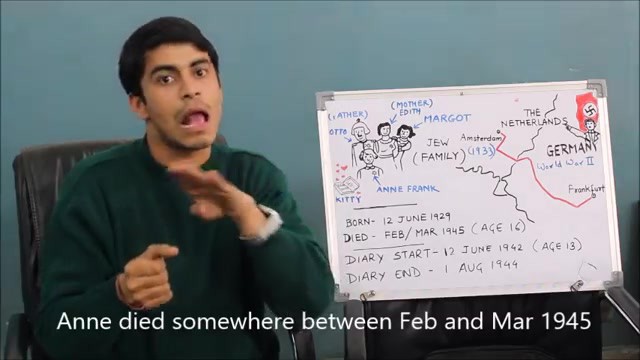 (FATHER)
OTTO
(MOTHER)
EDITH
MARGOT
JEW
(FAMILY)
ANNE FRANK
KITTY
THE
NETHERLANDS
Amsterdam
(1933)
GERMANY
World War II
Frankfurt
BORN- 12 JUNE 1929
DIED - FEB/MAR 1945 (AGE 16)
DIARY START- 12 JUNE 1942 (AGE 13)
DIARY END - 1 AUG 1944
Anne died somewhere between Feb and Mar 1945